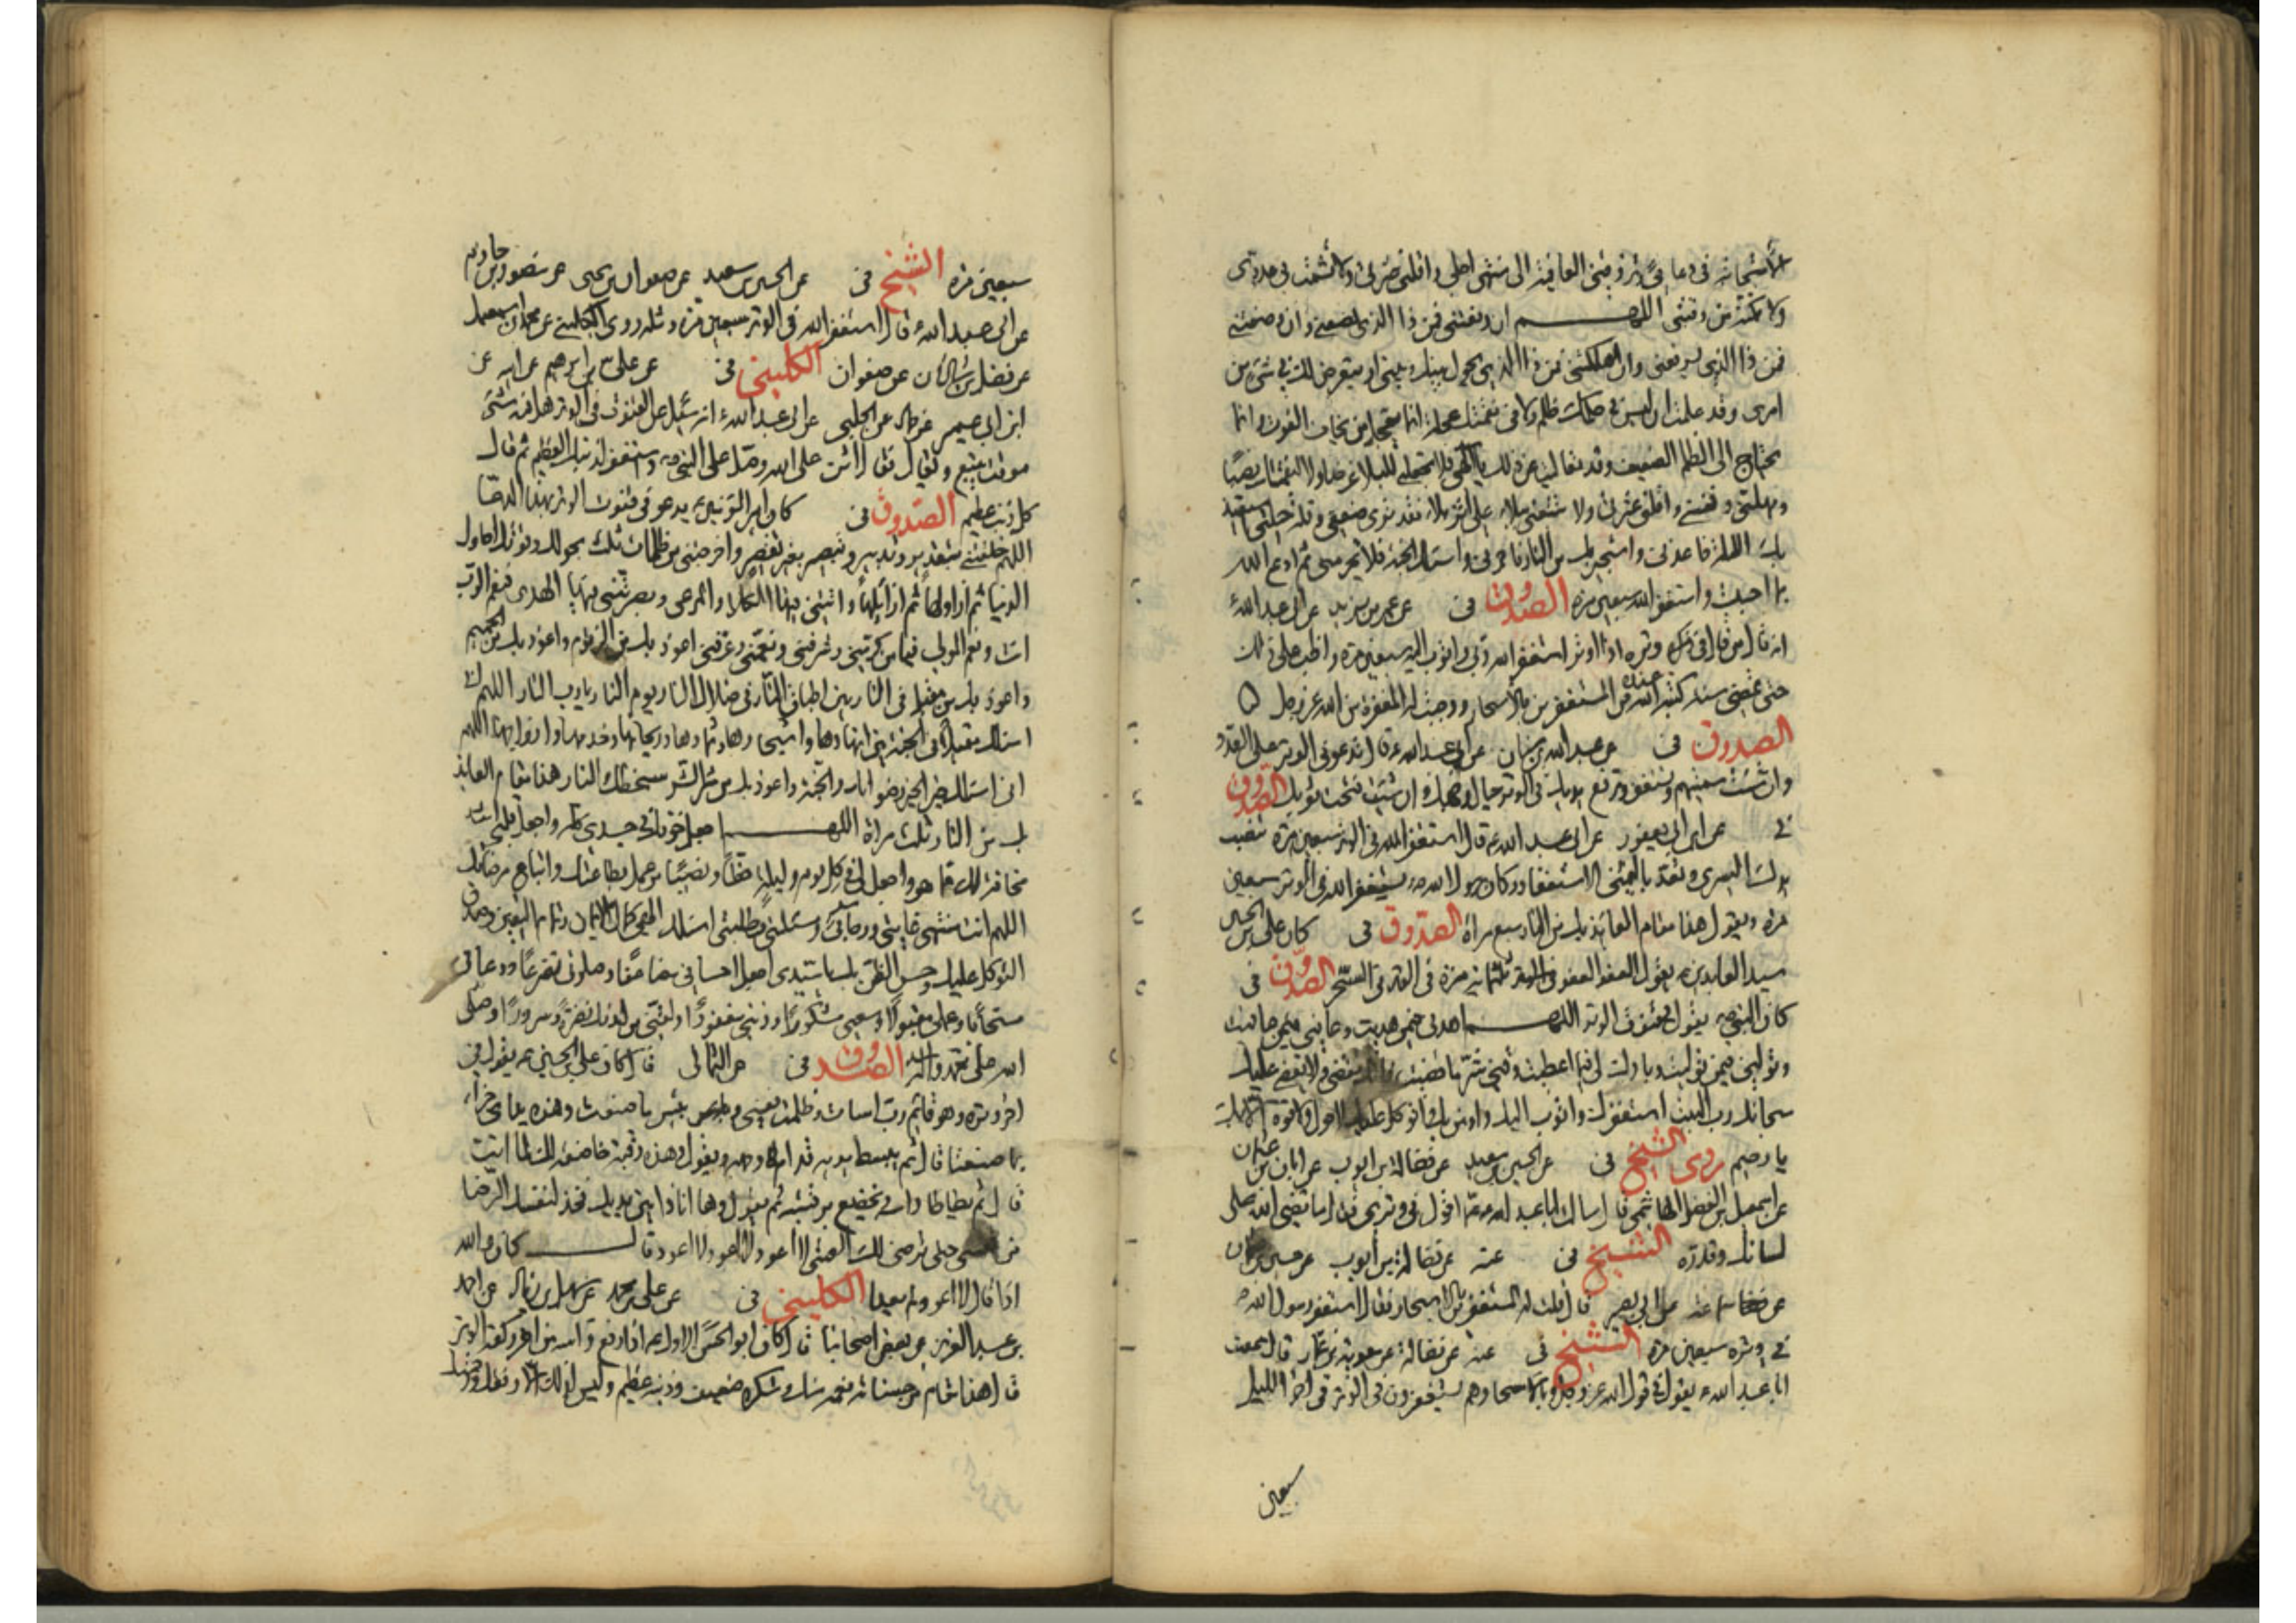 الاستجابة في دعائي وارزقني العافية الى منتهى اجلي واقلني عثرتي ولا تشمت بي عدوي
ولا تمكنه من رقبتي اللهم ان رفعتني فمن ذا الذي يضعني وان وضعتني
فمن ذا الذي يرفعني وان اهلكتني فمن ذا الذي يحول بينك وبيني او يتعرض لك في شيء من
امري وقد علمت ان ليس في حكمك ظلم ولا في نقمتك عجلة انما يعجل من يخاف الفوت وانما
يحتاج الى الظلم الضعيف وقد تعاليت عن ذلك يا الهي فلا تجعلني للبلاء غرضا ولا لنقمتك نصبا
ومهلني ونفسني واقلني عثرتي ولا تتبعني ببلاء على اثر بلاء فقد ترى ضعفي وقلة حيلتي استعيذ
بك الليلة فاعذني واستجير بك من النار فاجرني واسالك الجنة فلا تحرمني ثم ادع الله
بما احببت واستغفر الله سبعين مرة الصدوق في عن عمر بن يزيد عن ابي عبد الله ع
انه قال من قال في وتره اذا اوتر استغفر الله ربي واتوب اليه سبعين مرة واظب على ذلك
حتى تمضي سنة كتبه الله عنده من المستغفرين بالاسحار ووجبت له المغفرة من الله عز وجل
الصدوق في عن عبد الله بن سنان عن ابي عبد الله ع قال تدعو في الوتر على العدو
وان شئت سميتهم وتستغفر وترفع يديك في الوتر حيال وجهك وان شئت فتحت ثوبك الصدوق
في عن ابن ابي يعفور عن ابي عبد الله ع قال استغفر الله في الوتر سبعين مرة تنصب
يدك اليسرى وتعد باليمنى الاستغفار وكان رسول الله ص يستغفر الله في الوتر سبعين
مرة ويقول هذا مقام العائذ بك من النار سبع مرات الصدوق في كان علي بن الحسين
سيد العابدين ع يقول العفو العفو ثلثمائة مرة في الوتر في السحر الصدوق في
كان النبي ص يقول في قنوت الوتر اللهم اهدني فيمن هديت وعافني فيمن عافيت
وتولني فيمن توليت وبارك لي فيما اعطيت وقني شر ما قضيت تقضي ولا يقضى عليك
سبحانك رب البيت استغفرك واتوب اليك واومن بك واتوكل عليك لا حول ولا قوة الا بك
يا رحيم روى الشيخ في عن الحسين بن سعيد عن فضالة بن ايوب عن ابان بن عثمان
عن اسمعيل بن الفضل الهاشمي قال سالت ابا عبد الله ع عما اقول في وتري فقال ما قضى الله على
لسانك وقدره الشيخ في عنه عن فضالة بن ايوب عن حسين بن عثمان
عن سماعة عن ابي بصير قال قلت له المستغفرين بالاسحار فقال استغفر رسول الله ص
في وتره سبعين مرة الشيخ في عنه عن فضالة عن معوية بن عمار قال سمعت
ابا عبد الله ع يقول في قول الله عز وجل وبالاسحار هم يستغفرون في الوتر في اخر الليل
سبعين
سبعين مرة الشيخ في عن الحسين بن سعيد عن صفوان بن يحيى عن منصور بن حازم
عن ابي عبد الله ع قال استغفر الله في الوتر سبعين مرة ومثله روى الكليني عن محمد بن اسمعيل
عن فضل بن شاذان عن صفوان الكليني في عن علي بن ابرهيم عن ابيه عن
ابن ابي عمير عن حماد عن الحلبي عن ابي عبد الله ع انه سئل عن القنوت في الوتر هل فيه شيء
موقت يتبع ويقال فقال لا اثن على الله وصل على النبي ص واستغفر لذنبك العظيم ثم قال
كل ذنب عظيم الصدوق في كان امير المؤمنين ع يدعو في قنوت الوتر بهذا الدعاء
اللهم خلقتني بتقدير وتدبير وتبصير بغير تقصير واخرجتني من ظلمات ثلث بحولك وقوتك احاول
الدنيا ثم ازاولها ثم ازايلها واتيتني فيها الكلاء والمرعى وبصرتني فيها الهدى فنعم الرب
انت ونعم المولى فيا من كرمني وشرفني ونعمني وعرفني اعوذ بك من الزقوم واعوذ بك من الحميم
واعوذ بك من مقيل في النار بين اطباق النار في ظلال النار يوم النار يا رب النار اللهم اني
اسالك مقيلا في الجنة بين انهارها واشجارها وثمارها وريحانها وخدمها وازواجها اللهم
اني اسالك خير الخير رضوانك والجنة واعوذ بك من شر الشر سخطك والنار هذا مقام العائذ
بك من النار ثلث مرات اللهم اجعل خوفك في جسدي كله واجعل قلبي اشد
مخافة لك مما هو واجعل لي في كل يوم وليلة حظا ونصيبا من عمل بطاعتك واتباع مرضاتك
اللهم انت منتهى غايتي ورجائي ومسئلتي وطلبتي اسالك الهي كمال الايمان وتمام اليقين وصدق
التوكل عليك وحسن الظن بك يا سيدي اجعل احساني مضاعفا وصلوتي تضرعا ودعائي
مستجابا وعملي مقبولا وسعيي مشكورا وذنبي مغفورا ولقني منك نضرة وسرورا وصلى
الله على محمد واله الصدوق في عن الثمالي قال كان علي بن الحسين ع يقول في
اخر وتره وهو قائم رب اسات وظلمت نفسي وبئس ما صنعت وهذه يداي جزاء
بما صنعتا قال ثم يبسط يديه قدام وجهه ويقول وهذه رقبتي خاضعة لك لما اتيت
قال ثم يطاطا راسه ويخضع برقبته ثم يقول وها انا ذا بين يديك فخذ لنفسك الرضا
من نفسي حتى ترضى لك العتبى لا اعود لا اعود لا اعود قال كان والله
اذا قال لا اعود لم يعد الكليني في عن علي بن محمد عن سهل بن زياد عن احمد
بن عبد العزيز عن بعض اصحابنا قال كان ابو الحسن الاول ع اذا رفع راسه من اخر ركعة الوتر
قال هذا مقام من حسناته نعمة منك وشكره ضعيف وذنبه عظيم وليس لذلك الا رفقك ورحمتك